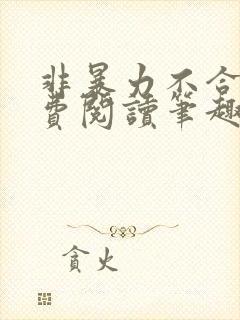 非暴力不合
費閱讀筆趣
貪火